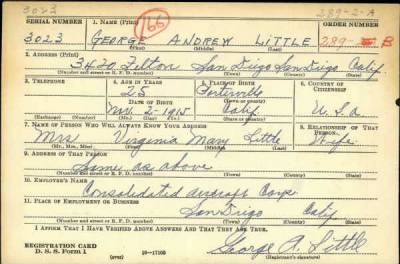 3023 289-2-A
SERIAL NUMBER 1. NAME (Print) 166 ORDER NUMBER
3023 GEORGE ANDREW LITTLE 289- B
(First) (Middle) (Last)
2. ADDRESS (Print)
3420 Felton San Diego San Diego Calif
(Number and street or R. F. D. number) (Town) (County) (State)
3. TELEPHONE 4. AGE IN YEARS 5. PLACE OF BIRTH 6. COUNTRY OF CITIZENSHIP
25 Porterville
DATE OF BIRTH (Town or county)
Nov. 2-1915 Calif U.S.a
(Exchange) (Number) (Mo.) (Day) (Yr.) (State or country)
7. NAME OF PERSON WHO WILL ALWAYS KNOW YOUR ADDRESS 8. RELATIONSHIP OF THAT PERSON
Mrs Virginia Mary Little Wife
(Mr., Mrs., Miss) (First) (Middle) (Last)
9. ADDRESS OF THAT PERSON
Same as above
(Number and street or R. F. D. number) (Town) (County) (State)
10. EMPLOYER'S NAME
Consolidated aircraft Corp.
11. PLACE OF EMPLOYMENT OR BUSINESS
San Diego Calif.
(Number and street or R. F. D. number) (Town) (County) (State)
I AFFIRM THAT I HAVE VERIFIED ABOVE ANSWERS AND THAT THEY ARE TRUE.
REGISTRATION CARD
D. S. S. Form 1 (over) 16-17105 George A. Little
(Registrant's signature)